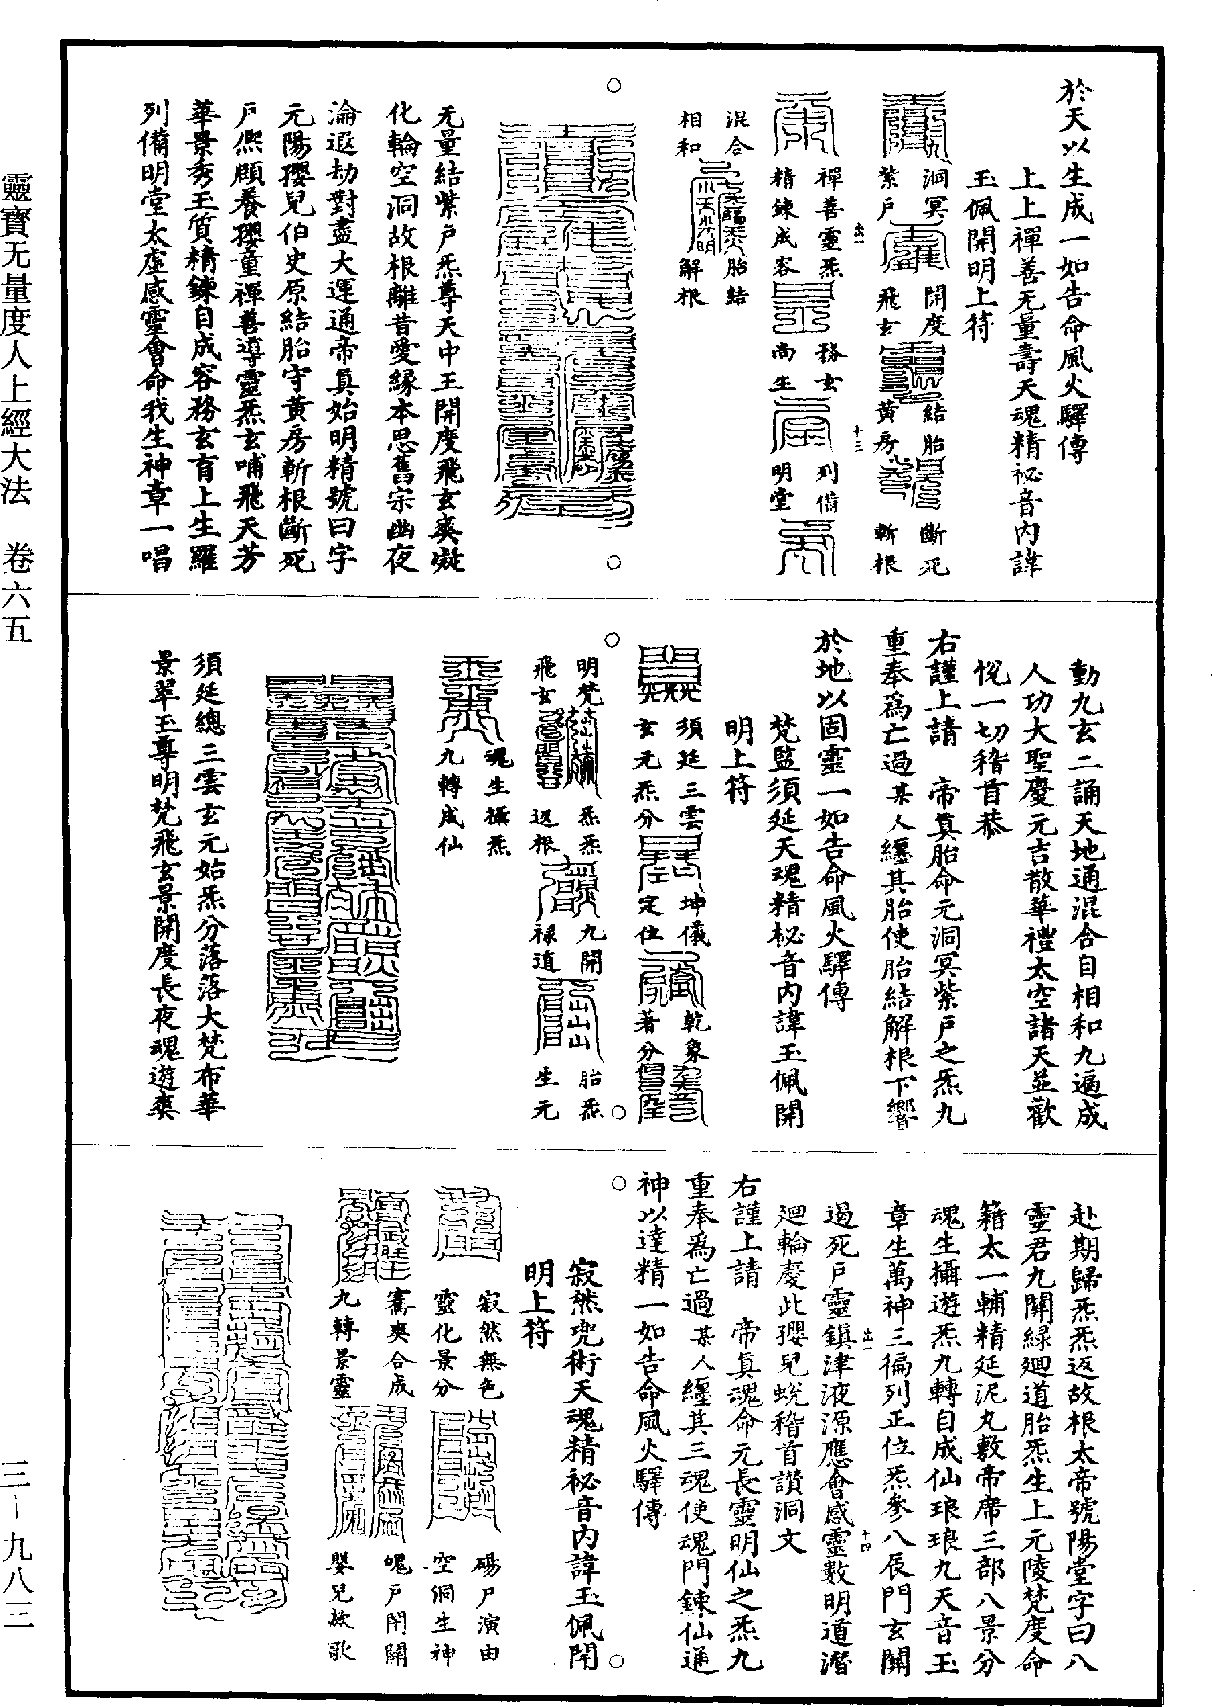 靈寶无量度人上經大法　卷六五
三－九八三
於天以生成一如告命風火驛傳
上上禪善无量壽天魂精祕音內諱
玉佩開明上符
洞冥
紫戶
開度
飛玄
結胎
黃房
斷死
斬根
禪善靈炁
精鍊成容
務玄
尚生
列備
明堂
混合
相和
胎結
解根
无量結紫戶炁尊天中王開度飛玄爽凝
化輪空洞故根離昔愛緣本思舊宗幽夜
淪遐劫對盡大運通帝真始明精號曰字
元陽瓔兒伯史原結胎守黃房斬根斷死
戶熙頤養瓔童禪善導靈炁玄哺飛天芳
華景秀玉質精鍊自成容務玄育上生羅
列備明堂太虛感靈會命我生神章一唱
動九玄二誦天地通混合自相和九遍成
人功大聖慶元吉散華禮太空諸天並歡
悅一切稽首恭
右謹上請　帝真胎命元洞冥紫戶之炁九
重奉為亡過某人纏其胎使胎結解根下響
於地以固靈一如告命風火驛傳
梵監須延天魂精祕音內諱玉佩開
明上符
須延三雲
玄元炁分
坤儀
定位
乾象
著分
明梵
飛玄
炁炁
返根
九開
祿道
胎炁
生元
魂生攝炁
九轉成仙
須延總三雲玄元始炁分落落大梵布華
景翠玉尊明梵飛玄景開度長夜魂遊爽
赴期歸炁炁返故根太帝號陽堂字曰八
靈君九關綠廻道胎炁生上元陵梵度命
籍太一輔精延泥丸敷帝席三部八景分
魂生攝遊炁九轉自成仙琅琅九天音玉
章生萬神三徧列正位炁參八辰門玄關
遏死戶靈鎮津液源應會感靈數明道潛
廻輪慶此瓔兒蛻稽首讚洞文
右謹上請　帝真魂命元長靈明仙之炁九
重奉為亡過某人纏其三魂使魂門鍊仙通
神以達精一如告命風火驛傳
寂然兜術天魂精祕音內諱玉佩開
明上符
寂然無色
靈化景分
碭尸演由
空洞生神
騫爽合成
九轉景靈
魂戶開關
嬰兒故歌